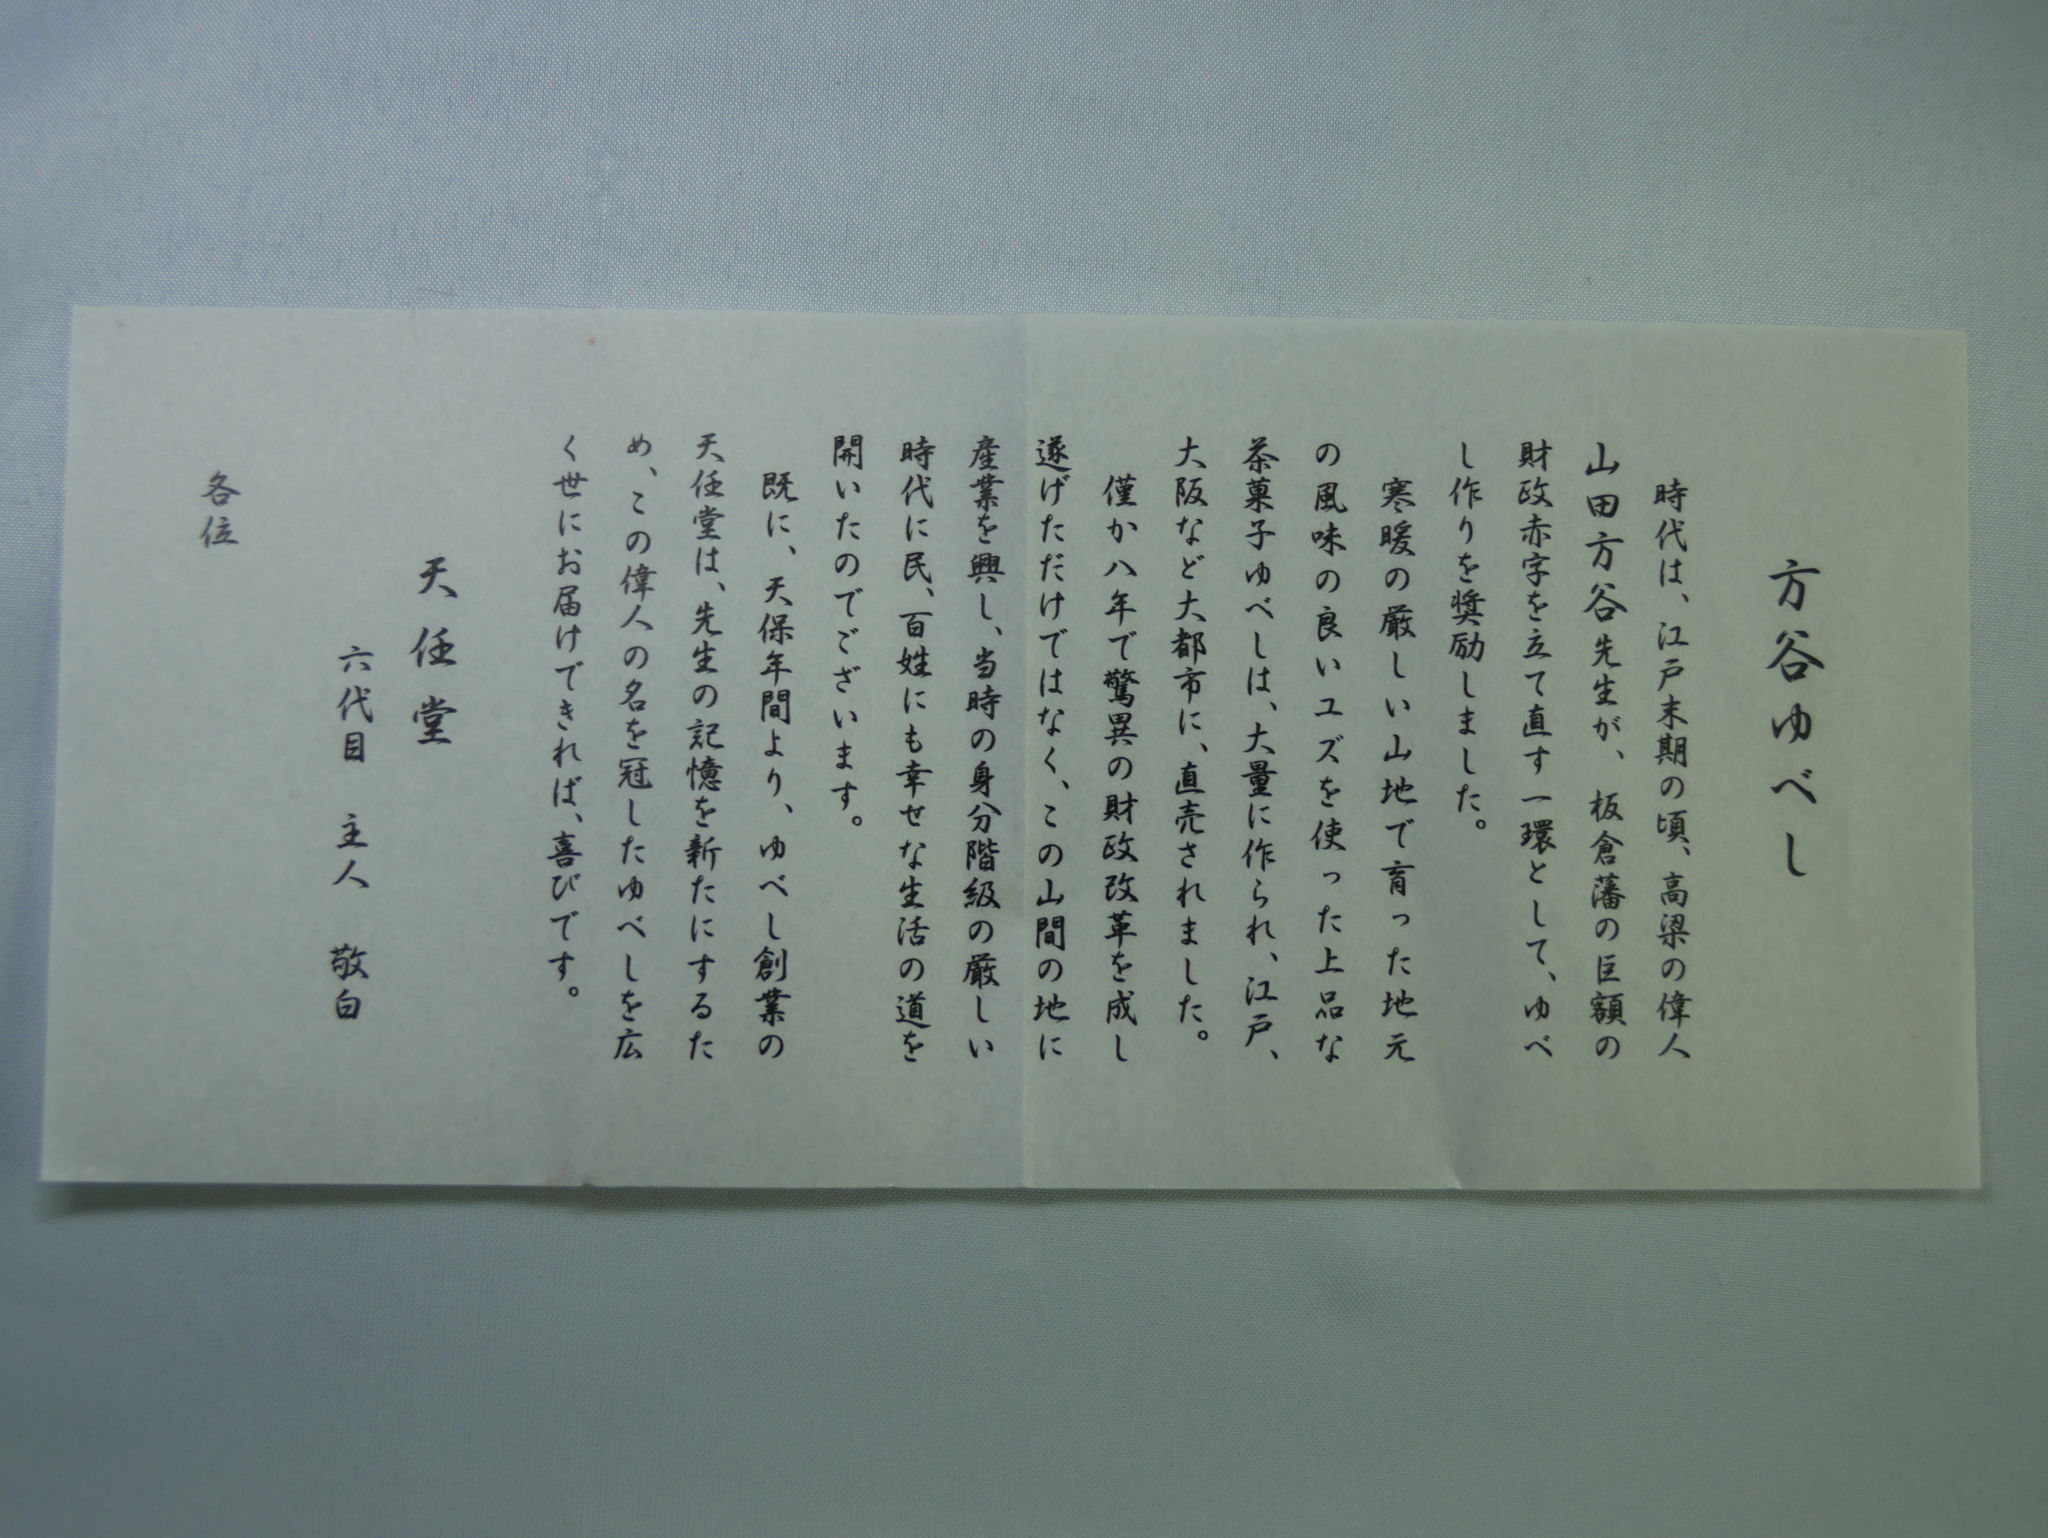 方谷ゆべし
時代は、江戸末期の頃、高梁の偉人
山田方谷先生が、板倉藩の巨額の
財政赤字を立て直す一環として、ゆべ
し作りを奨励しました。
寒暖の厳しい山地で育った地元
の風味の良いユズを使った上品な
茶菓子ゆべしは、大量に作られ、江戸、
大阪など大都市に、直売されました。
僅か八年で驚異の財政改革を成し
遂げただけではなく、この山間の地に
産業を興し、当時の身分階級の厳しい
時代に民、百姓にも幸せな生活の道を
開いたのでございます。
既に、天保年間より、ゆべし創業の
天任堂は、先生の記憶を新たにするた
め、この偉人の名を冠したゆべしを広
く世にお届けできれば、喜びです。
天任堂
六代目 主人 敬白
各位